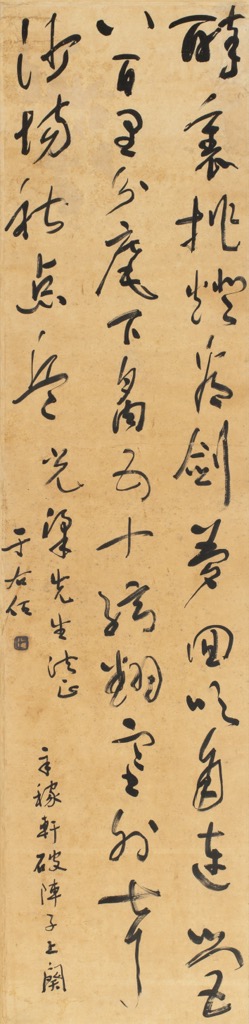 醉裏挑燈看劍夢回吹角連營
八百里分麾下炙五十絃翻塞外聲
沙場秋点兵 光梁先生法正
于右任
辛稼軒破陣子上闋